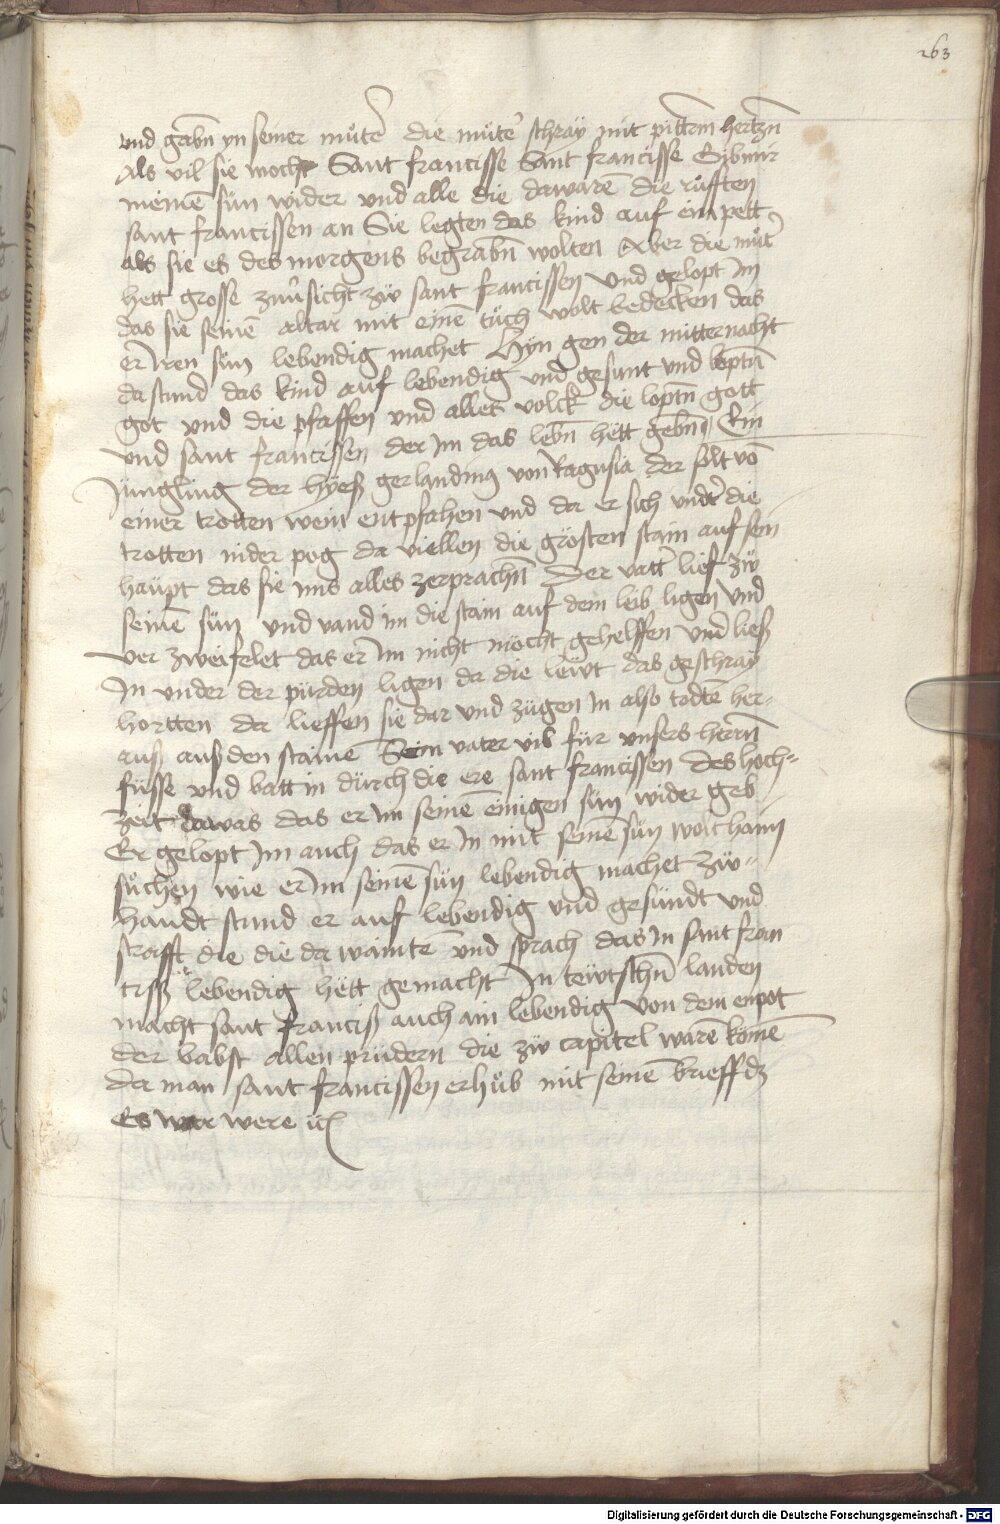 263
vnd gabn yn seiner mũter die mũter schray mit pitterm hertzn
Als vil sie mocht Sant francisse Sant francisse Gib mir
meinē sün wider vnd alle die da warē die rüfften
sant francissen an Sie legten das kind auf ein pett
als sie es des morgens begrabn wolten Aber die můt'
hett grosse zuůsicht zů sant francissen vnd gelopt Im
das sie seinē altar mit einē tůch wolt bedecken das
er Iren sün lebendig machet Hyn gen der mitternacht
da stund das kind auf lebendig vnd gesunt vnd loptn̄
got vnd die pfaffen vnd alles volck die loptn̄ gott
vnd sant francissen der Im das lebn̄ hett gebn̄ Ein
Jüngling der hyeß gerlandinus von Ragusia der solt vō
einer trotten wein entpfahen vnd da er sich vndt' die
trotten nider pog da viellen die grösten stain auf sein
haüpt das sie ims alles zerprachn̄ Der vatt' lief zů
seinē sün vnd vand im die stain auf dem leib ligen vnd
ver zweifelet das er Im nicht möcht gehelffen vnd ließ
In vnder der pürden ligen da die lewt das geschray
hortten da lieffen sie dar vnd zügen In also todtē her-
auß auß den stainē Sein vater viel für vnsers herrn̄
füsse vnd batt in dürch die ere sant francissen des hoch=
zeit da was das er im seinē einigen sün wider geb
Er gelopt Im auch das er In mit seinē sün wolt haim
sůchen wie er Im seinē sün lebendig machet Zů=
handt stund er auf lebendig vnd gesündt vnd
strafft die die da waintē vnd sprach das In sant fran
ciss lebendig hett gemacht In tewtschn̄ landen
macht sant franciß auch ain lebendig von dem enpot
der babst allen prüdern die zů capitel warē komē
da man sant francissen erhůb mit seinē brieff dz
Es war were
Digitalisierung gefördert durch die Deutsche Forschungsgemeinschaft - DFG